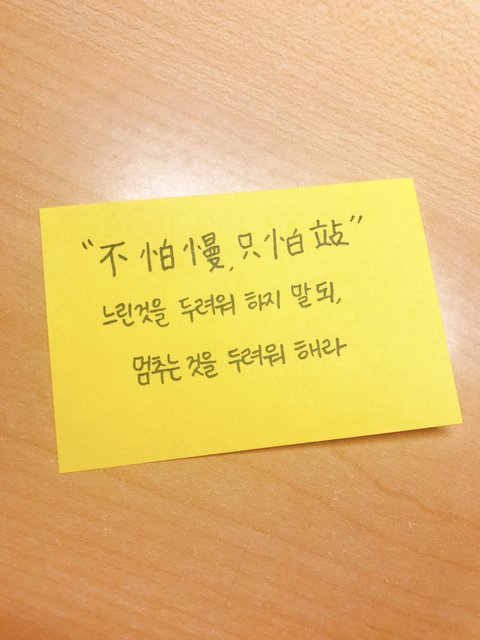 “不怕慢,只怕站”
느린것을 두려워 하지 말되,
멈추는 것을 두려워 해라